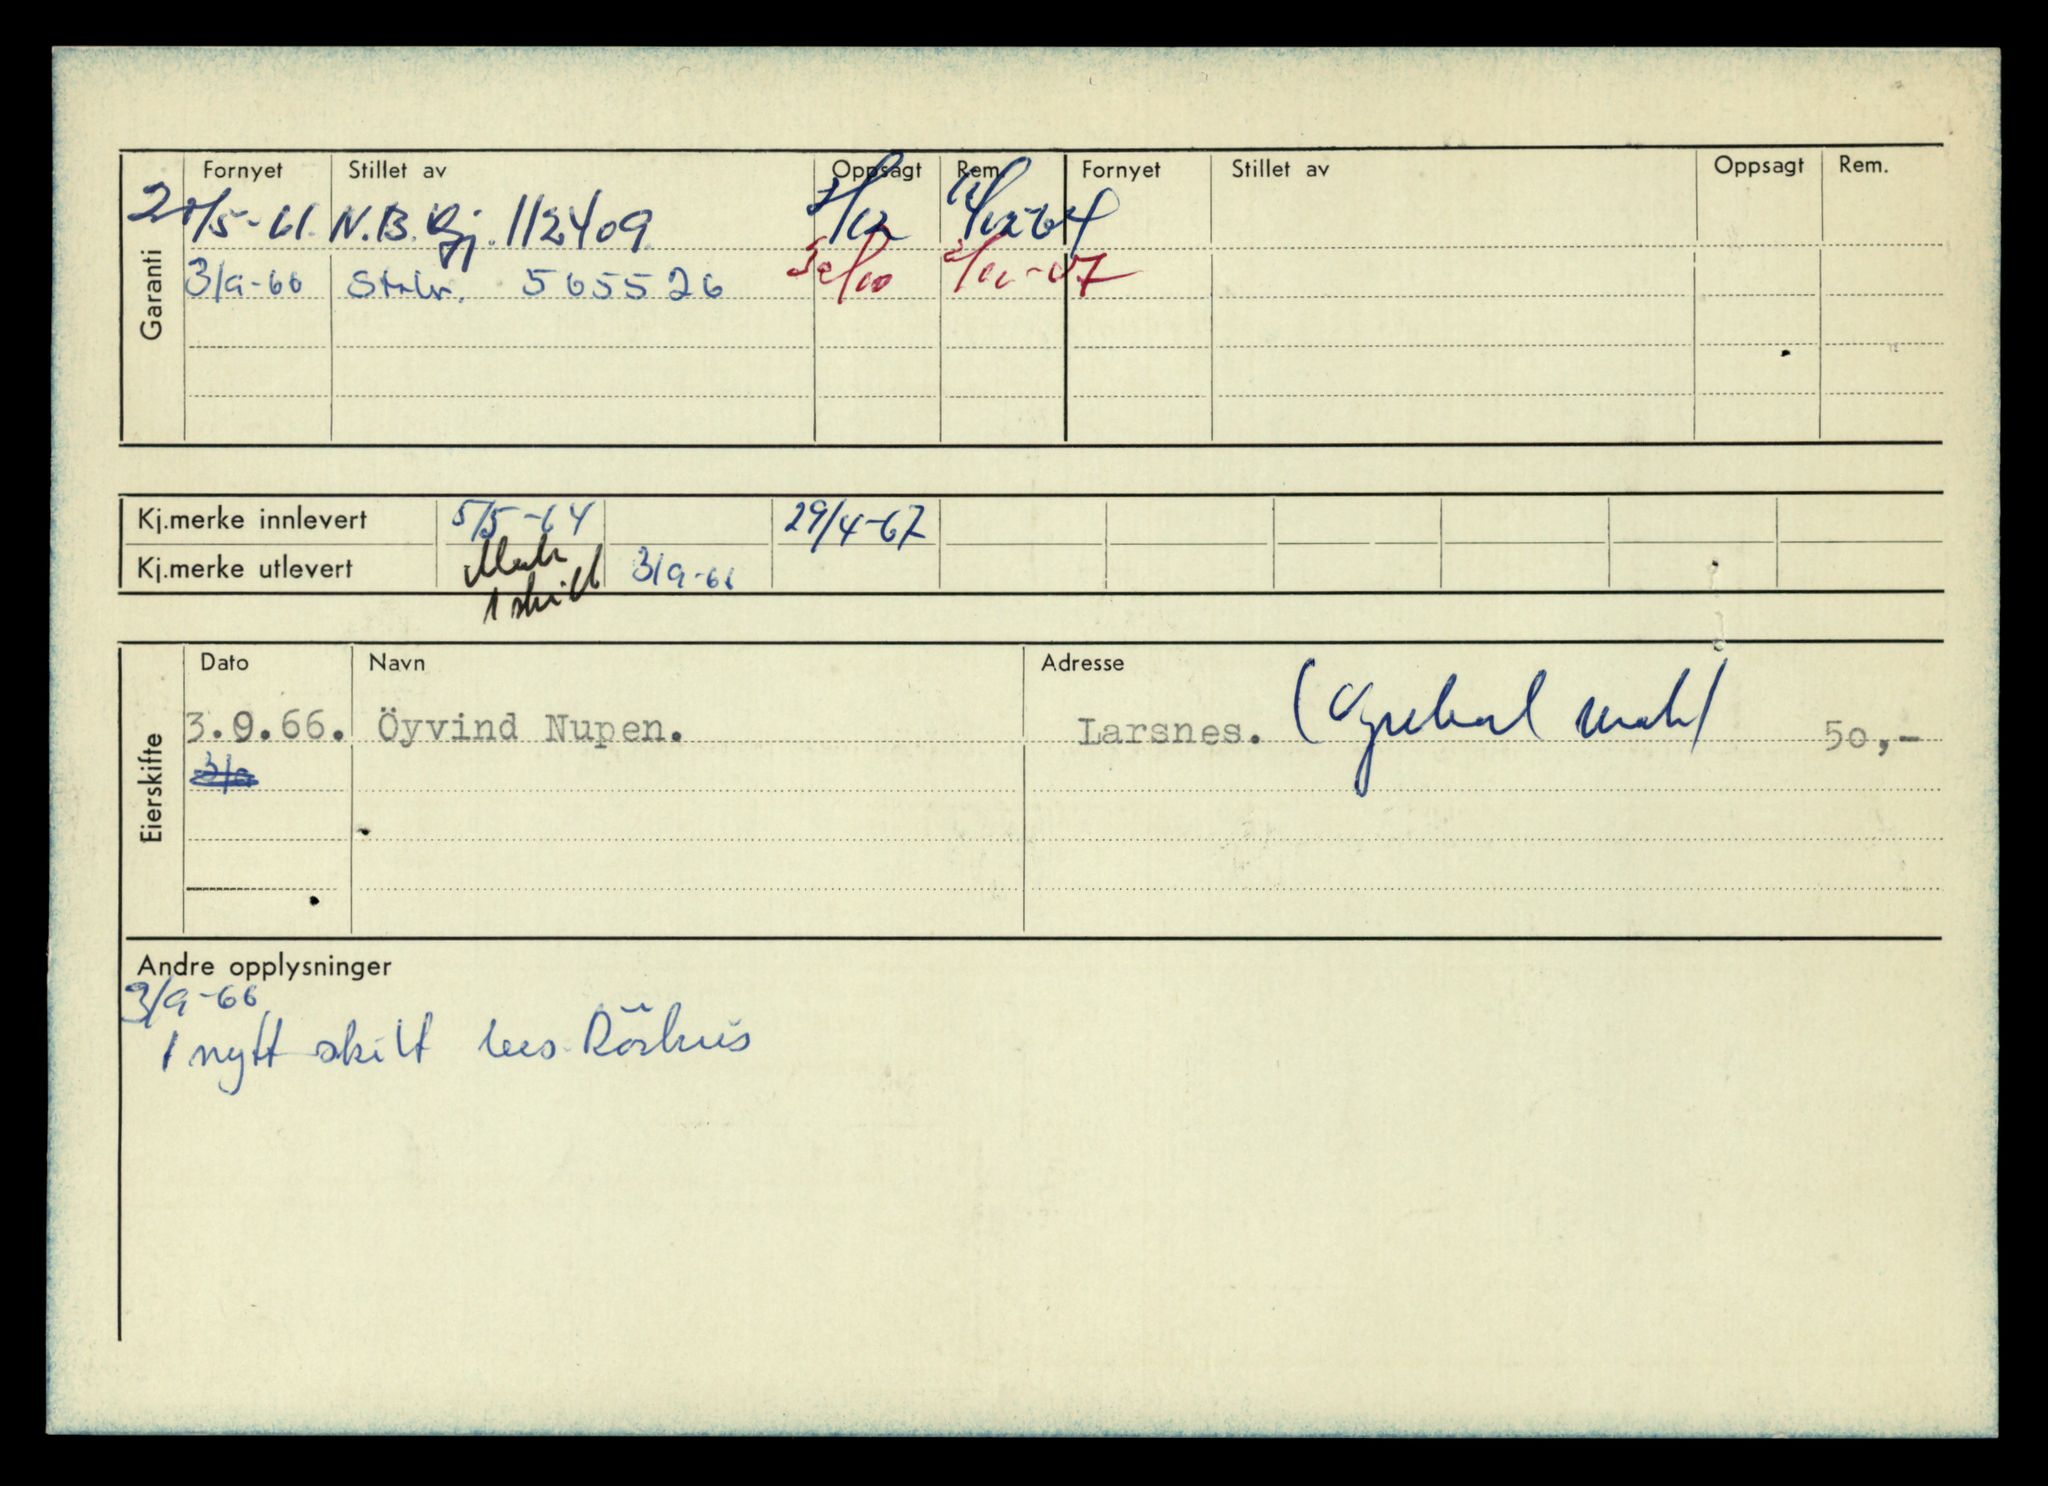 Garanti
Fornyet Stillet av Oppsagt Rem. Fornyet Stillet av Oppsagt Rem.
/5-61. N.B. Gj. 112409 /12 /12-64
3/9-66 5655526 30/10 /11-67
Kj.merke innlevert 5/5-64 29/4-67
Kj.merke utlevert 3/9-66
1 skilt
Eierskifte
Dato Navn Adresse
3.9.66. Öyvind Nupen. Larsnes. 50,-
3/9
Andre opplysninger
3/9-66
1 nytt skilt